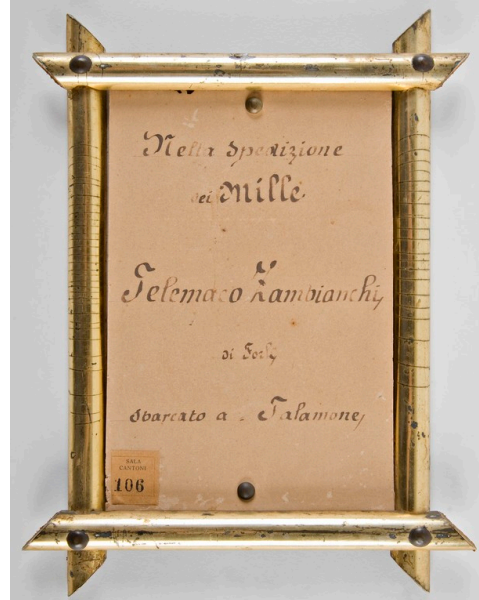 Nella spedizione
dei Mille
Telemaco Zambianchi
di Forlì
sbarcato a - Talamone
SALA
CANTONI
106